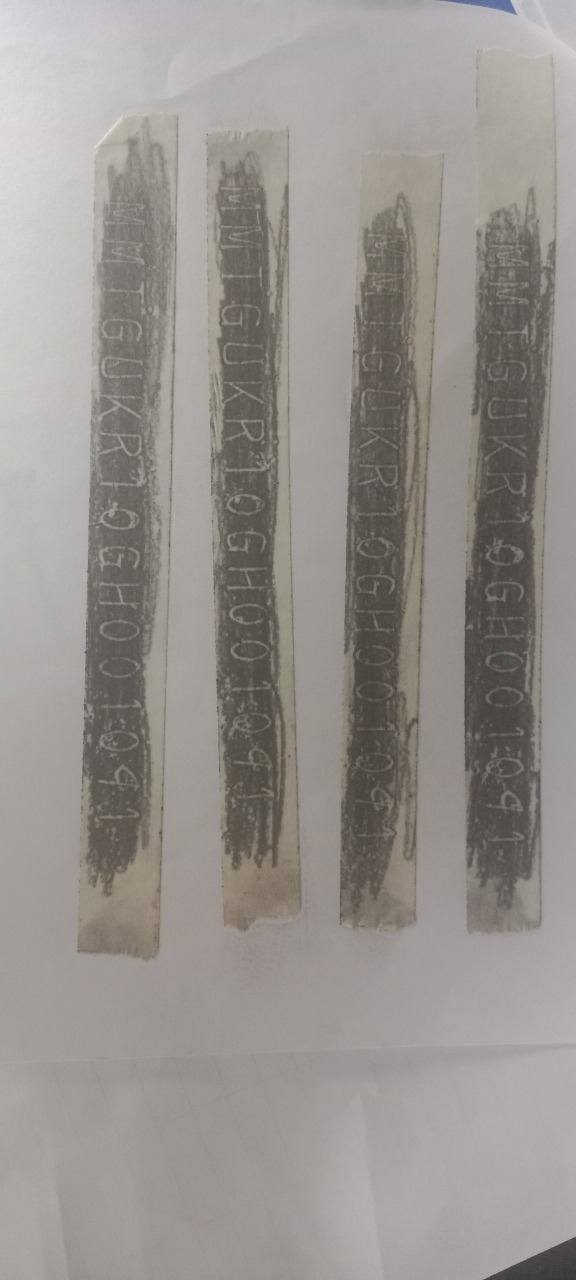 MMTGUKR10GH001091
MMTGUKR10GH001091
MMTGUKR10GH001091
MMTGUKR10GH001091